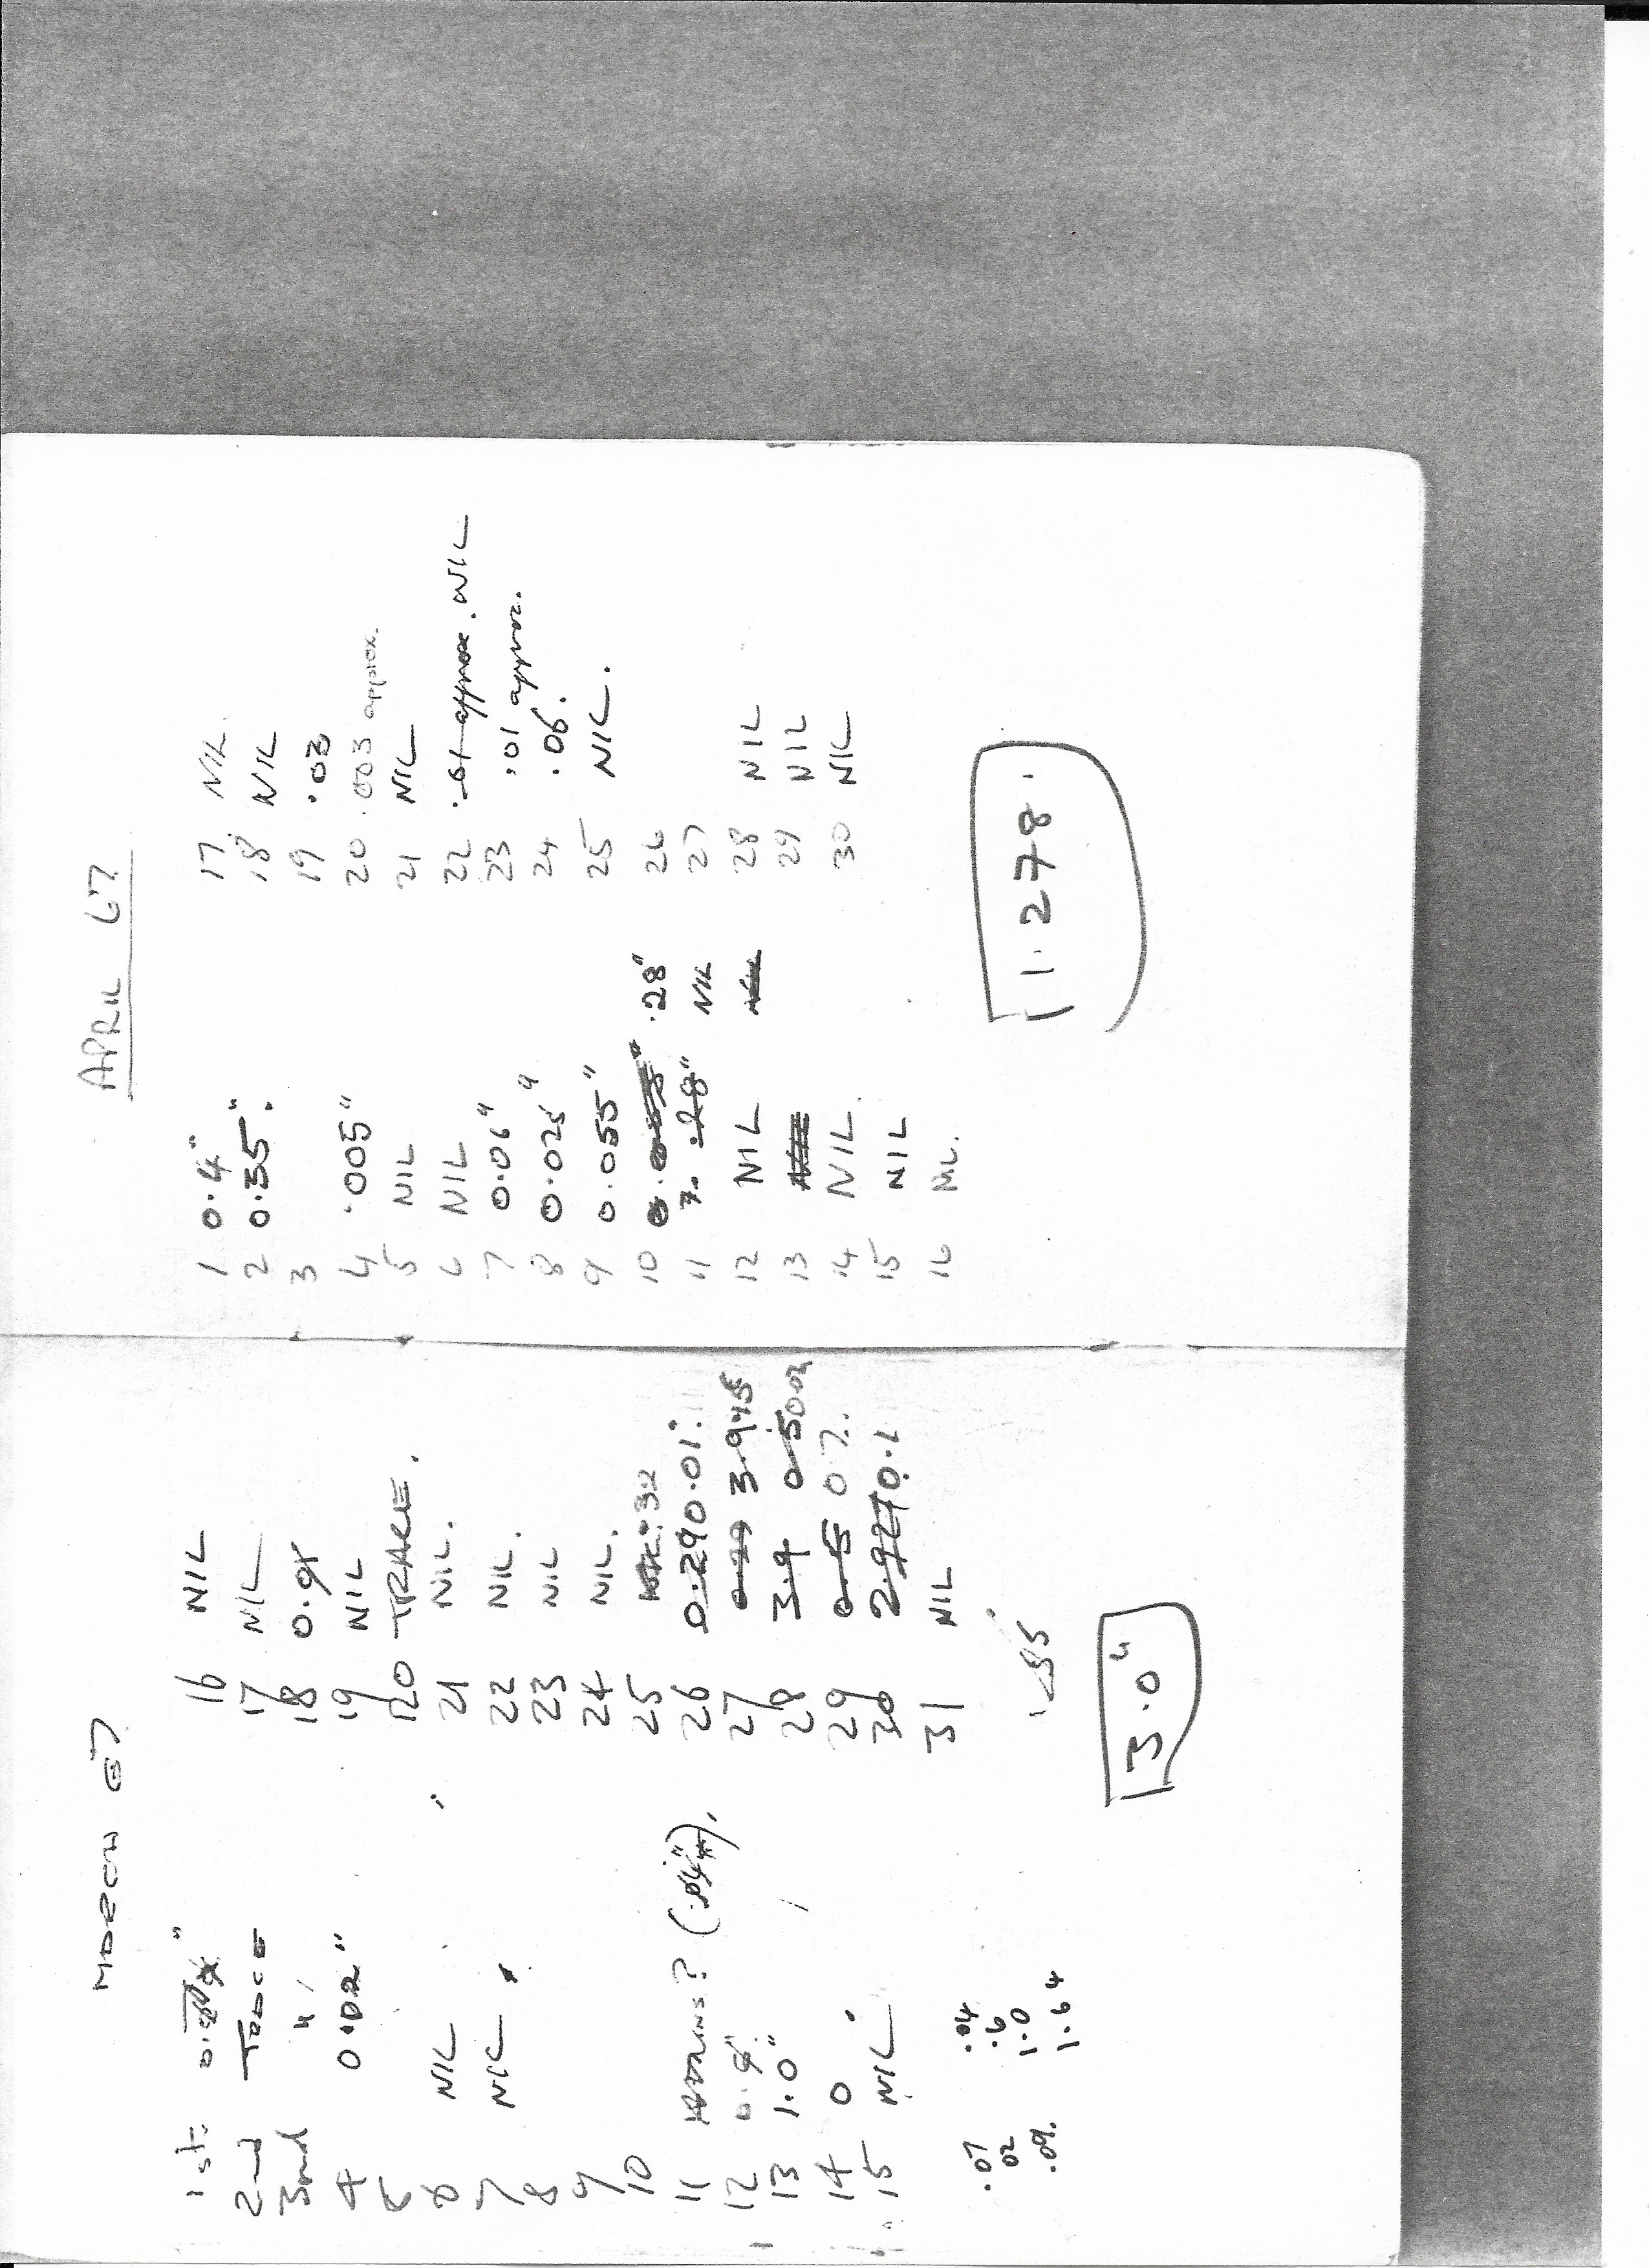 MARCH 67
1st. 0.
2nd TRACE
3rd "
4 0.02"
5
6 NIL
7 NIL.
8
9
10
11 ?
12
13 1.0"
14 0.
15 NIL
.07
02
.09.
.04
.6
1.0
1.64
16 NIL
17 NIL
18
19 NIL
20 TRACE.
21 NIL.
22 NIL.
23 NIL
24 NIL.
25 .32
26 0.29 0.01.
27 0.29 3.945
28 3.9 0.5 0.02
29 0.5 07.
30 2.927 0.1
31 NIL
3.0"
APRIL 67
1 0.4"
2 0.35".
3
4 .005"
5 NIL
6 NIL
7 0.06"
8 0.025"
9 0.055"
10 .28"
11 NIL
12 NIL
13
14 NIL
15 NIL
16 NIL.
17. NIL.
18 NIL
19 .03
20 .003 approx.
21 NIL
22 .01 approx. NIL
23 .01 approx.
24 .06.
25 NIL.
26
27
28 NIL
29 NIL
30 NIL
1.278.